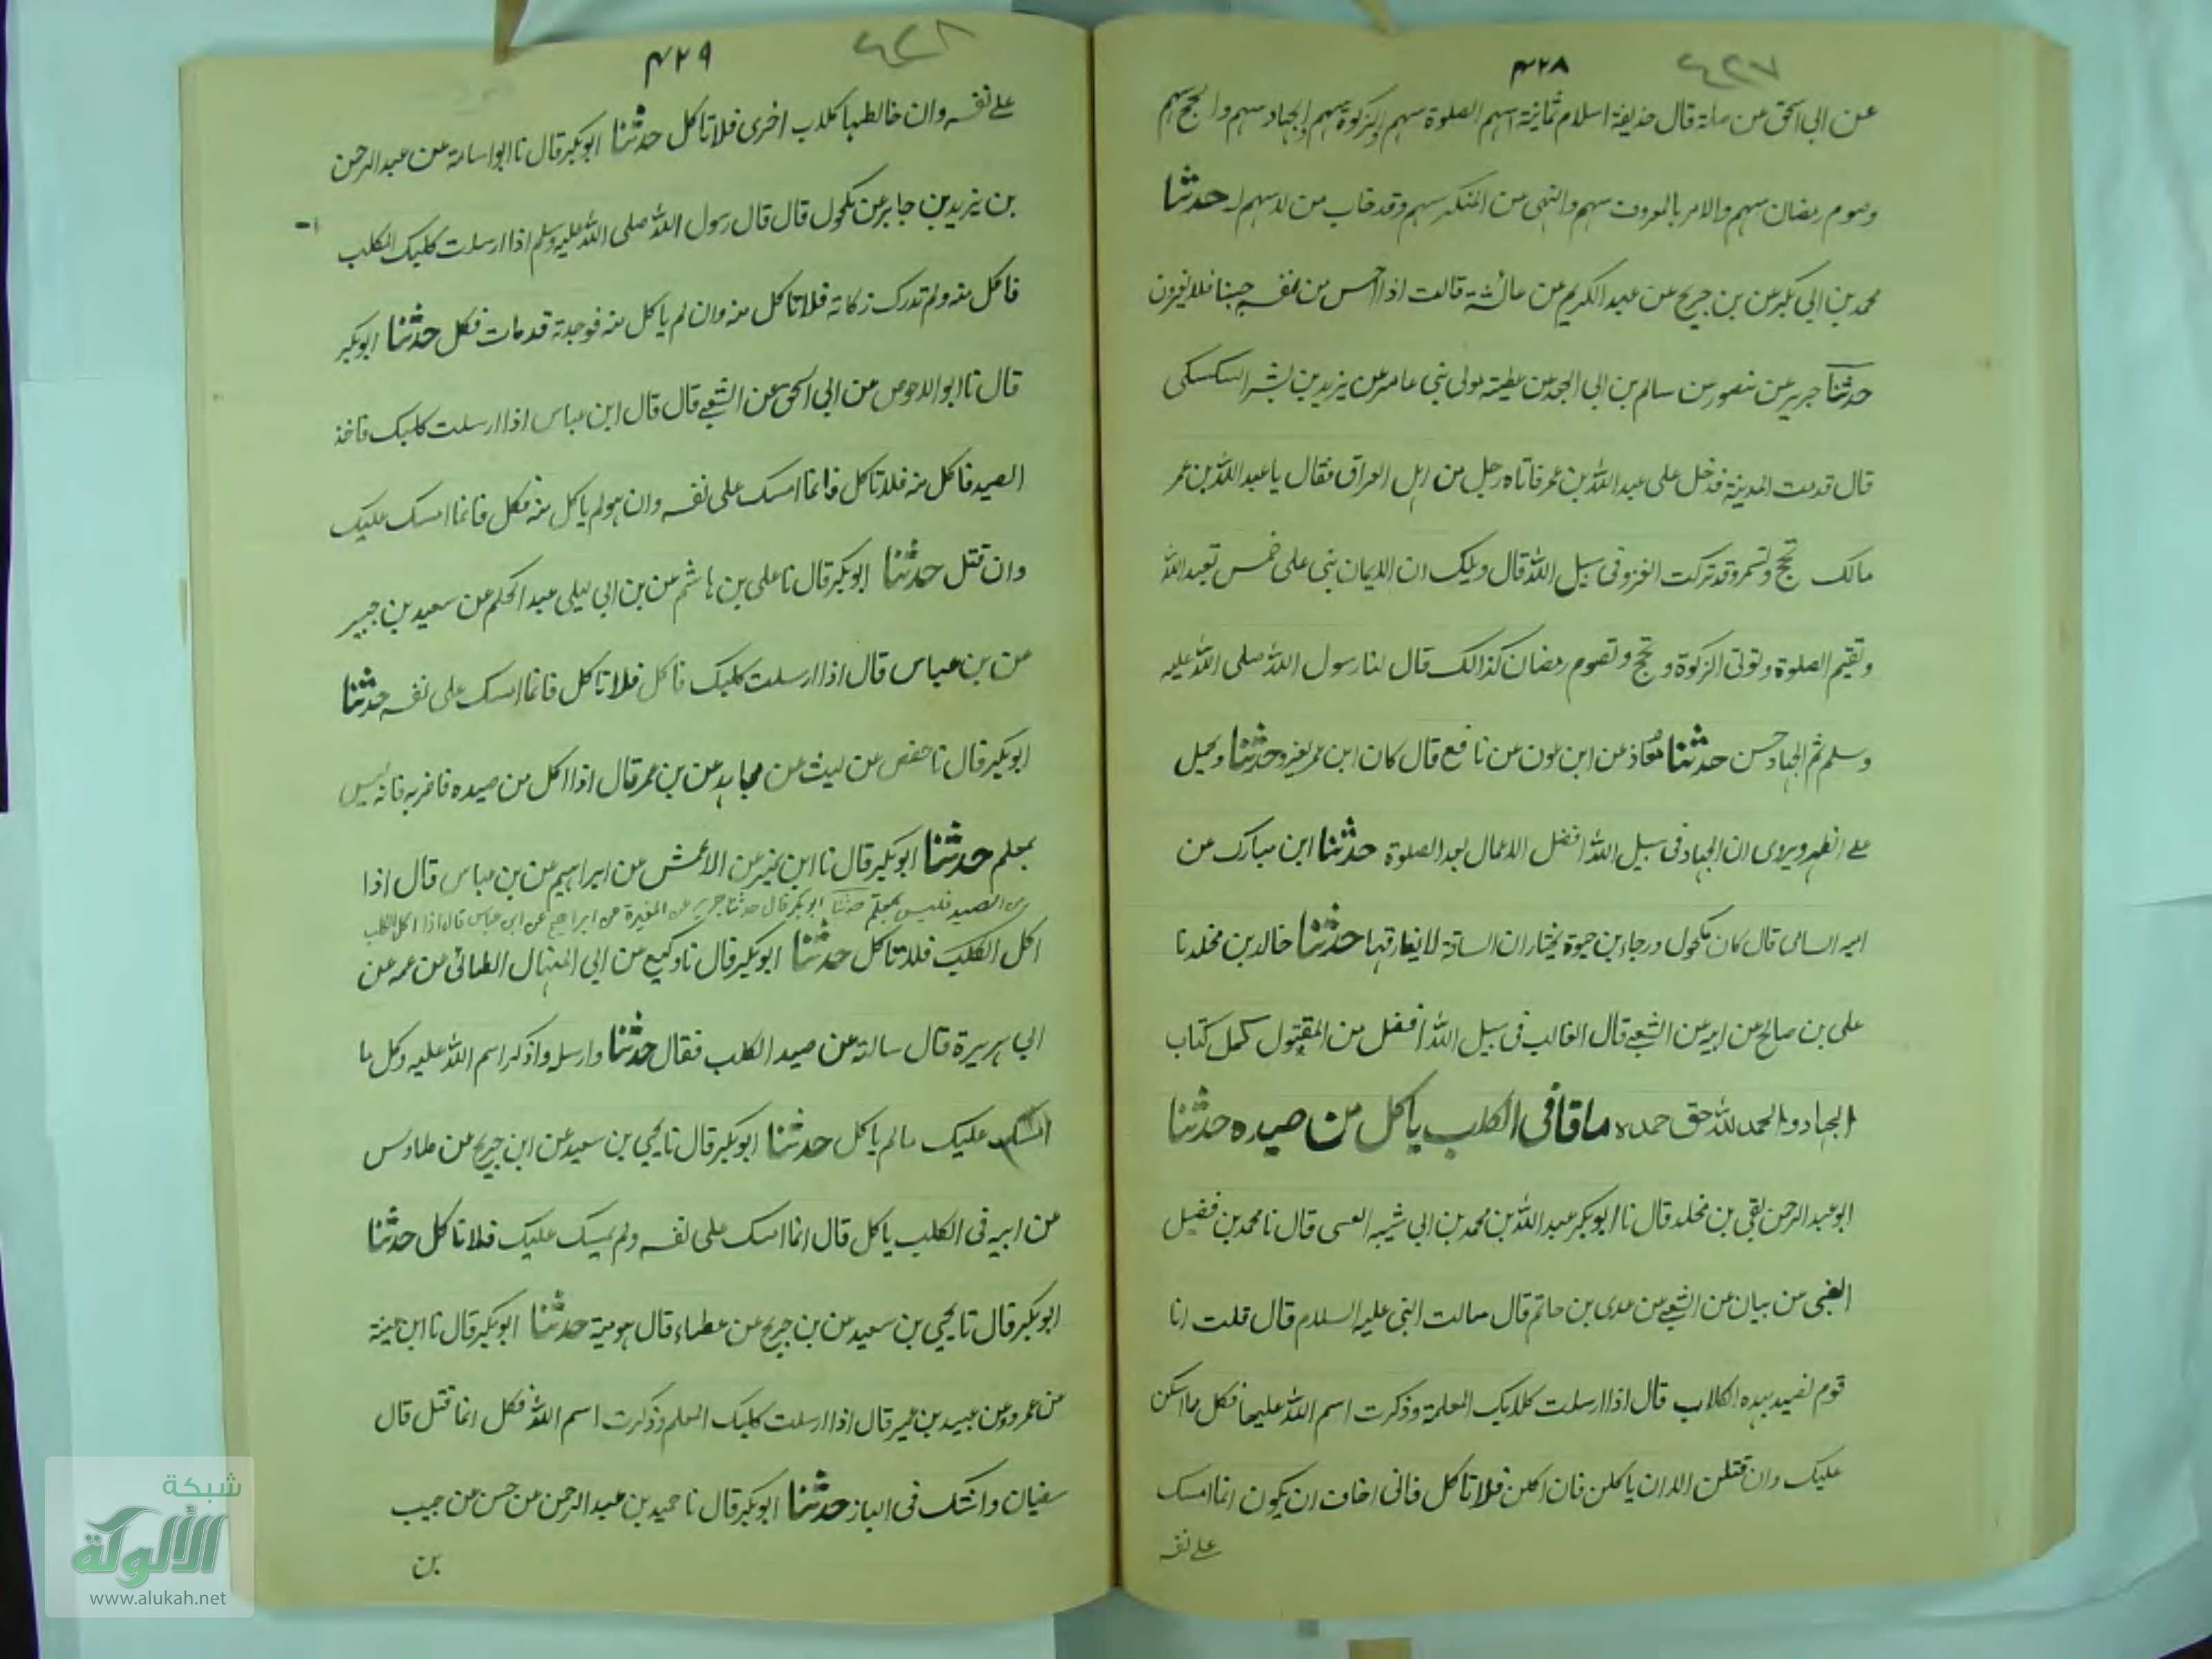 ٤٢٧
٤٢٨
عن ابی اسحق عن صلة قال حذیفة اسلام ثمانیة اسهم الصلوة سهم والزکوة سهم والجهاد سهم والحج سهم
وصوم رمضان سهم والامر بالمعروف سهم والنهی عن المنکر سهم وقد خاب من لا سهم له حدثنا
محمد بن ابی بکر عن بن جریج عن عبد الکریم عن عائشة قالت اذا احس من نفسه جبنا فلا یغزون
حدثنا جریر عن منصور عن سالم بن ابی الجعد عن عطیة مولی بنی عامر عن یزید بن بشر السکسکی
قال قدمت المدینة فدخل علی عبد الله بن عمر فاتاه رجل من اهل العراق فقال یا عبد الله بن عمر
مالک تحج وتعتمر وقد ترکت الغزو فی سبیل الله قال ویلک ان الایمان بنی علی خمس تعبد الله
وتقیم الصلوة وتوتی الزکوة وتحج وتصوم رمضان کذالک قال لنا رسول الله صلی الله علیه
وسلم ثم الجهاد حسن حدثنا معاذ عن ابن عون عن نافع قال کان ابن عمر یغزو حدثنا ویحمل
علے الظهر ویروی ان الجهاد فی سبیل الله افضل الاعمال بعد الصلوة حدثنا ابن مبارک عن
امیه السامی قال کان مکحول ورجاء بن حیوة یختاران الساقة لا یفارقها حدثنا خالد بن مخلد نا
علی بن صالح عن ابیه عن الشعبے قال الغالب فی سبیل الله افضل من المقتول کمل کتاب
الجهاد والحمد لله حق حمده ما قا فی الکلب یاکل من صیده حدثنا
ابو عبد الرحمن بقی بن مخلد قال نا ابو بکر عبد الله بن محمد بن ابی شیبه العسی قال نا محمد بن فضیل
الضبی عن بیان عن الشعبے عن عدی بن حاتم قال سالت النبی علیه السلام قال قلت انا
قوم نصید بهذه الکلاب قال اذا ارسلت کلابک المعلمة وذکرت اسم الله علیها فکل مما امسکن
علیک وان قتلن الا ان یاکلن فان اکلن فلا تاکل فانی اخاف ان یکون انما امسک
علے نفسه
٤٢٨
٤٢٩
علے نفسه وان خالطها کلاب اخری فلا تاکل حدثنا ابو بکر قال نا ابو اسامة عن عبد الرحمن
بن یزید بن جابر عن مکحول قال قال رسول الله صلی الله علیه وسلم اذا ارسلت کلبک المکلب
فاکل منه ولم تدرک زکاته فلا تاکل منه وان لم یاکل منه فوجدته قد مات فکل حدثنا ابو بکر
قال نا ابو الاحوص عن ابی اسحق عن الشعبے قال قال ابن عباس اذا ارسلت کلبک فاخذ
الصید فاکل منه فلا تاکل فانما امسک علی نفسه وان هو لم یاکل منه فکل فانما امسک علیک
وان قتل حدثنا ابو بکر قال نا علی بن هاشم عن بن ابی لیلی عبد الحکم عن سعید بن جبیر
عن بن عباس قال اذا ارسلت کلبک فاکل فلا تاکل فانما امسک علی نفسه حدثنا
ابو بکر قال نا حفص عن لیث عن مجاهد عن بن عمر قال اذا اکل من صیده فاضربه فانه لیس
بمعلم حدثنا ابو بکر قال نا ابن نمیر عن الاعمش عن ابراهیم عن بن عباس قال اذا
من الصید فلیس بمعلم حدثنا ابو بکر قال حدثنا جریر عن المغیرة عن ابراهیم عن ابن عباس قال اذا اکل الکلب
اکل الکلب فلا تاکل حدثنا ابو بکر قال نا وکیع عن ابی المنهال الطائی عن عمه عن
ابی هریرة قال سالته عن صید الکلب فقال حدثنا وارسله واذکر اسم الله علیه وکل ما
امسک علیک مالم یاکل حدثنا ابو بکر قال نا یحیی بن سعید عن ابن جریج عن طاوس
عن ابیه فی الکلب یاکل قال انما امسک علی نفسه ولم یمسک علیک فلا تاکل حدثنا
ابو بکر قال نا یحیی بن سعید عن بن جریج عن عطاء قال هو میتة حدثنا ابو بکر قال نا ابن عیینة
عن عمرو عن عبید بن عمیر قال اذا ارسلت کلبک المعلم وذکرت اسم الله فکل انما قتل قال
سفیان وانشک فی الباز حدثنا ابو بکر قال نا حمید بن عبد الرحمن عن حسن عن جبیب
بن
شبكة
الألوكة
www.alukah.net